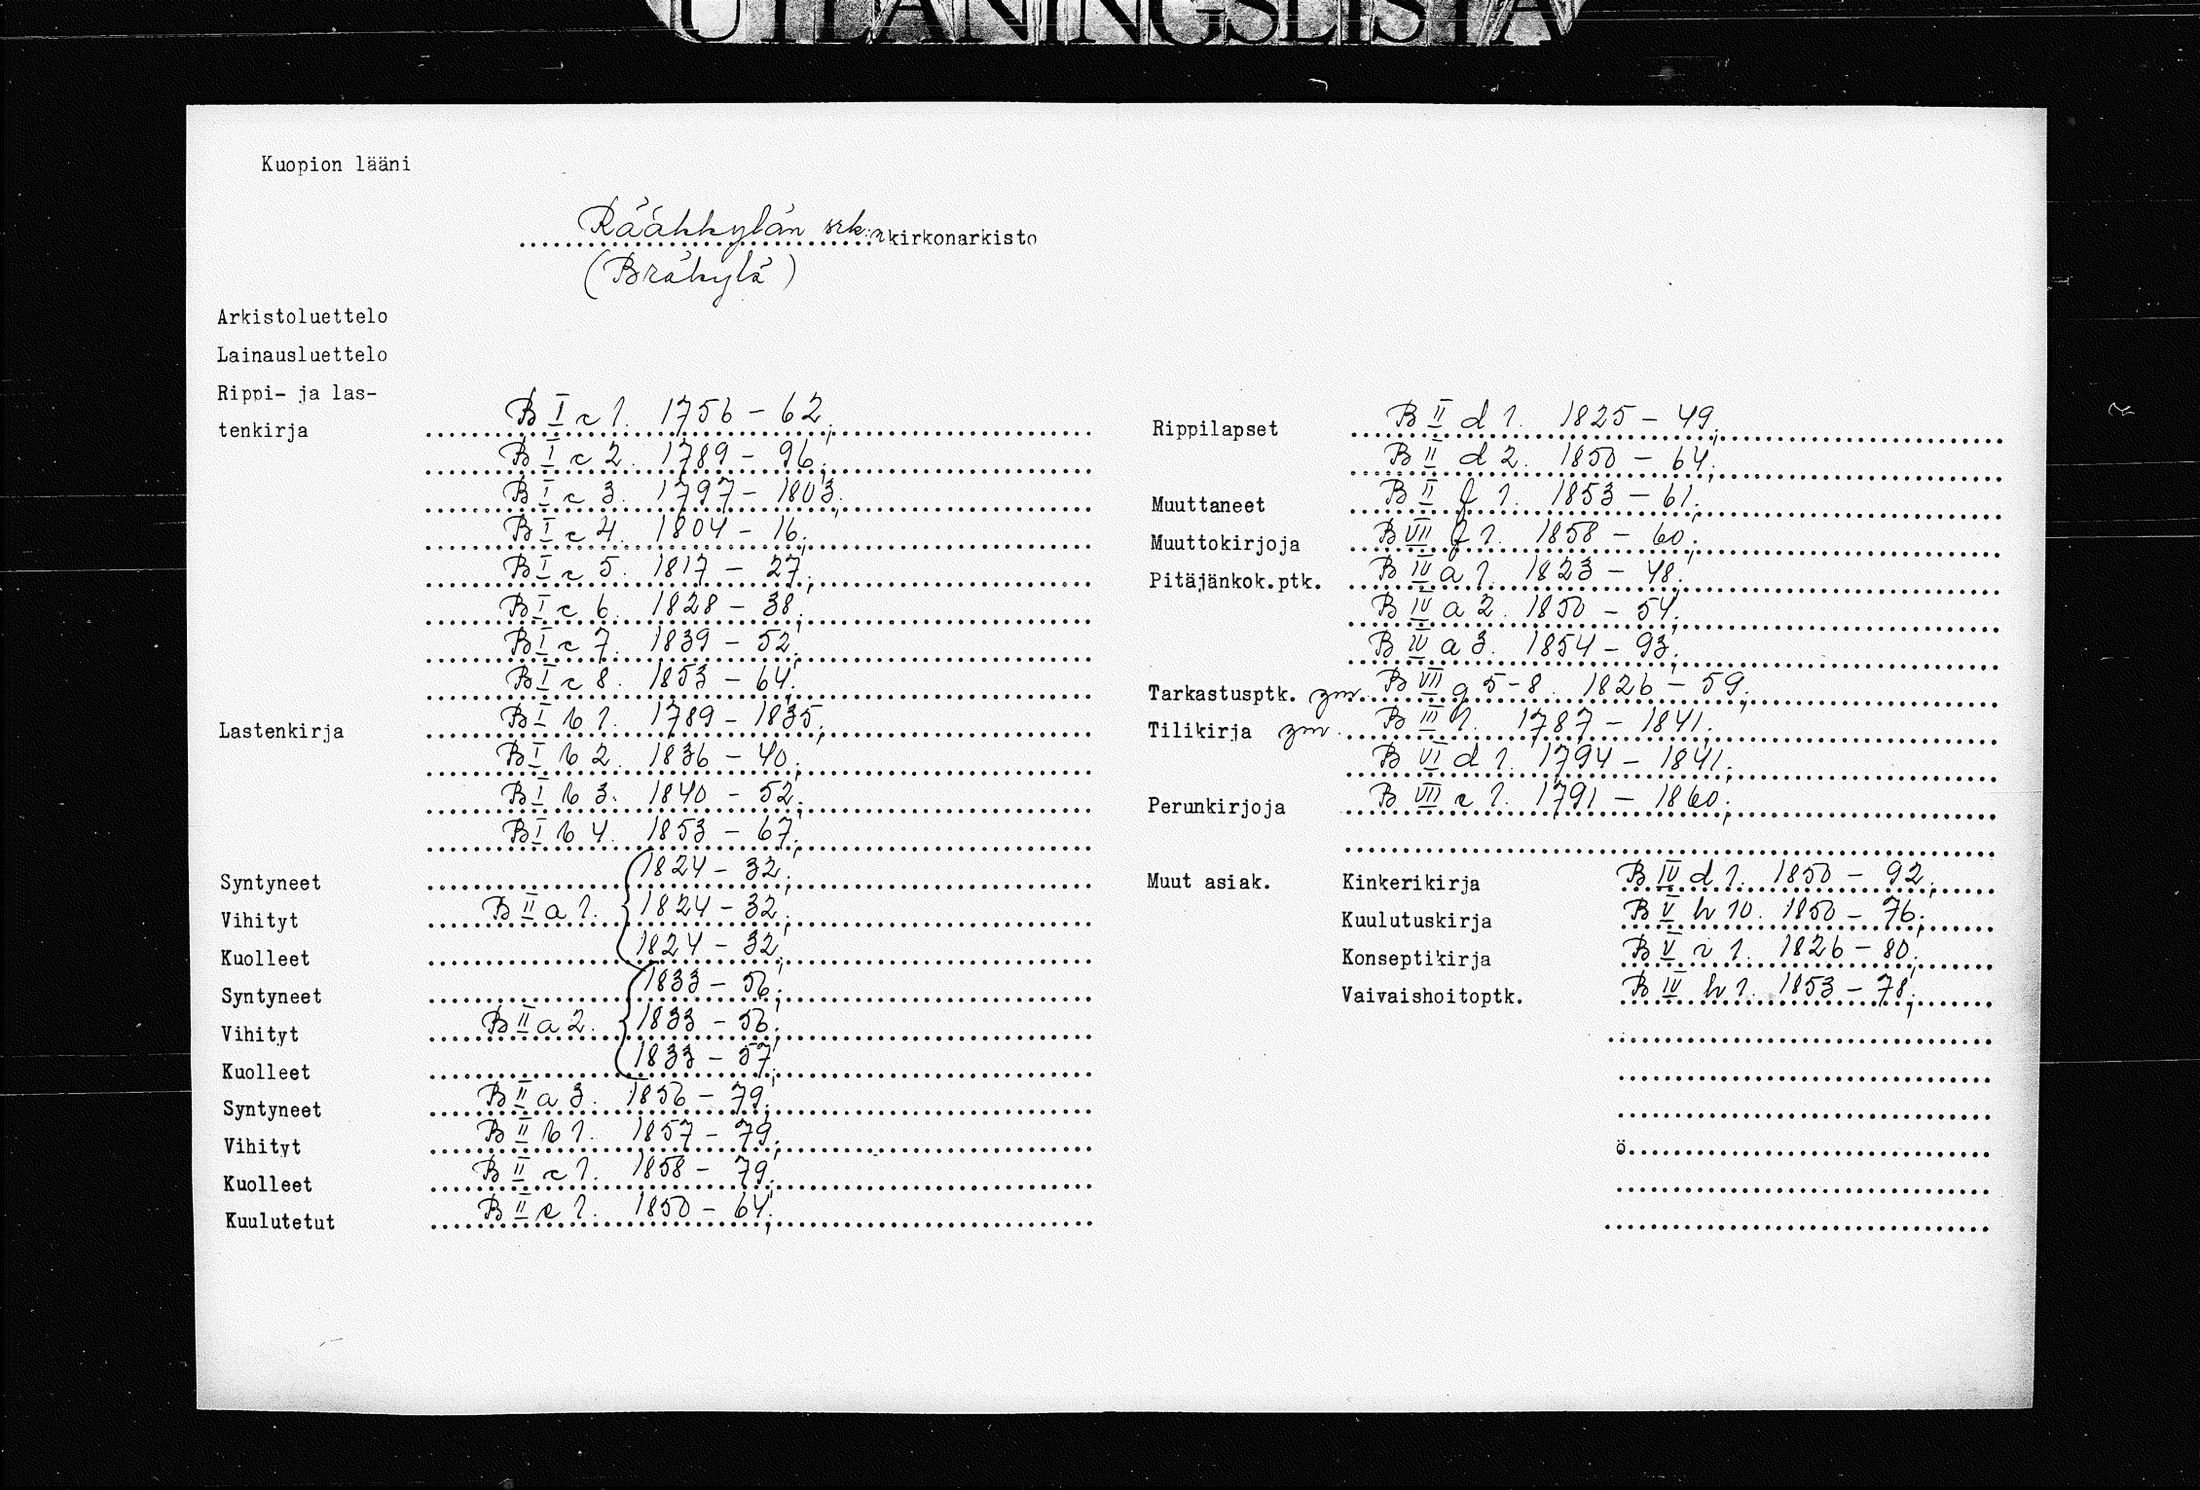 UTLÅNINGSLISTA
Kuopion lääni
Rääkkylän srk:n kirkonarkisto
(Bräkylä)
Arkistoluettelo
Lainausluettelo
Rippi- ja las-
tenkirja B I c 1. 1756 - 62;
B I c 2. 1789 - 96;
B I c 3. 1797 - 1803;
B I c 4. 1804 - 16;
B I c 5. 1817 - 27;
B I c 6. 1828 - 38;
B I c 7. 1839 - 52;
B I c 8. 1853 - 64;
Lastenkirja B I b 1. 1789 - 1835;
B I b 2. 1836 - 40;
B I b 3. 1840 - 52;
B I b 4. 1853 - 67;
Syntyneet 1824 - 32;
Vihityt B II a 1. 1824 - 32;
Kuolleet 1824 - 32;
Syntyneet 1833 - 56;
Vihityt B II a 2. 1833 - 56;
Kuolleet 1833 - 57;
Syntyneet B II a 3. 1856 - 79;
Vihityt B II b 1. 1857 - 79;
Kuolleet B II c 1. 1858 - 79;
Kuulutetut B II e 1. 1850 - 64;
Rippilapset B II d 1. 1825 - 49;
B II d 2. 1850 - 64;
Muuttaneet B II f 1. 1853 - 61;
Muuttokirjoja B VII f 1. 1858 - 60;
Pitäjänkok.ptk. B IV a 1. 1823 - 48;
B IV a 2. 1850 - 54;
B IV a 3. 1854 - 93;
Tarkastusptk. ym. B VII g 5-8. 1826 - 59;
Tilikirja ym. B III 1. 1787 - 1841;
B VI d 1. 1794 - 1841;
Perunkirjoja B VIII c 1. 1791 - 1860;
Muut asiak. Kinkerikirja B IV d 1. 1850 - 92;
Kuulutuskirja B V h 10. 1850 - 76;
Konseptikirja B V i 1. 1826 - 80;
Vaivaishoitoptk. B IV h 1. 1853 - 78;
ö